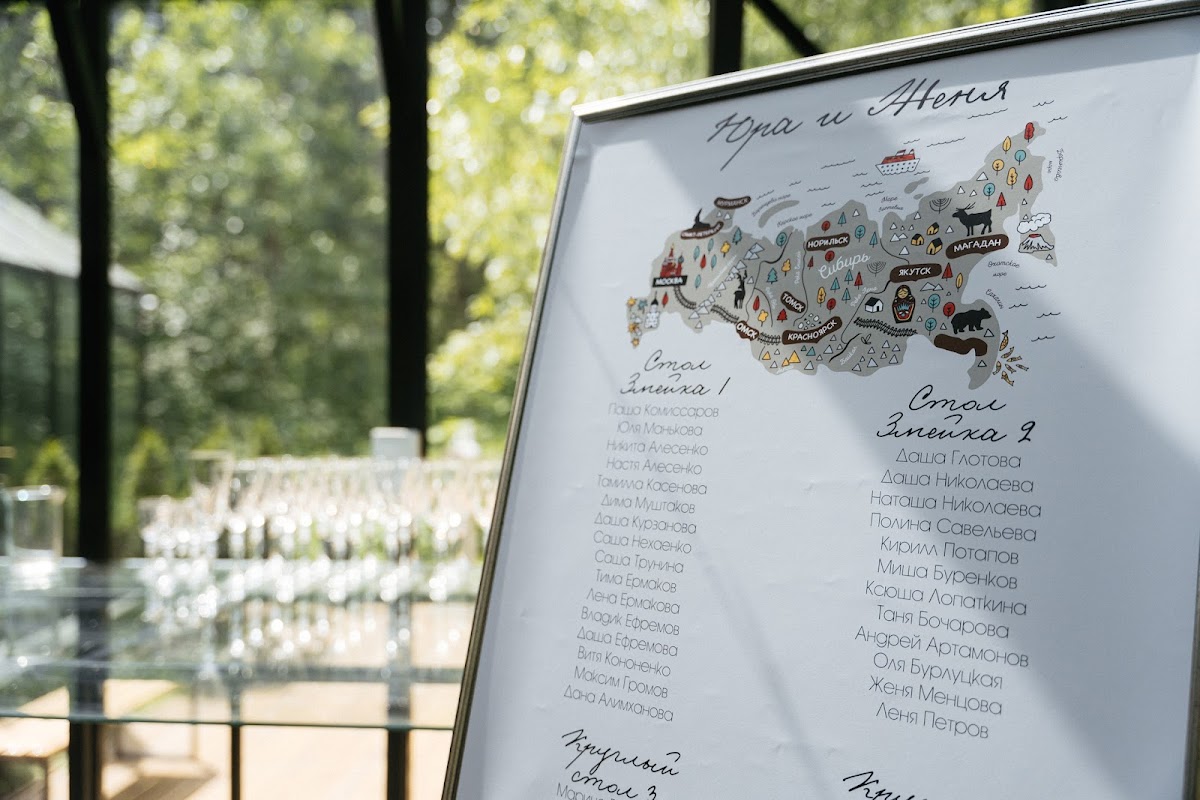 Юра и Женя
МУРМАНСК
САНКТ-ПЕТЕРБУРГ
МОСКВА
НОРИЛЬСК
Сибирь
МАГАДАН
ЯКУТСК
ТОМСК
ОМСК
КРАСНОЯРСК
Карское море
Море
Лаптевых
Охотское
море
Стол
Змейка 1
Паша Комиссаров
Юля Манькова
Никита Алесенко
Настя Алесенко
Тамилла Касенова
Дима Муштаков
Даша Курзанова
Саша Нехаенко
Саша Трунина
Тима Ермаков
Лена Ермакова
Владик Ефремов
Даша Ефремова
Витя Кононенко
Максим Громов
Дана Алимханова
Круглый
стол 3
Стол
Змейка 2
Даша Глотова
Даша Николаева
Наташа Николаева
Полина Савельева
Кирилл Потапов
Миша Буренков
Ксюша Лопаткина
Таня Бочарова
Андрей Артамонов
Оля Бурлуцкая
Женя Менцова
Леня Петров